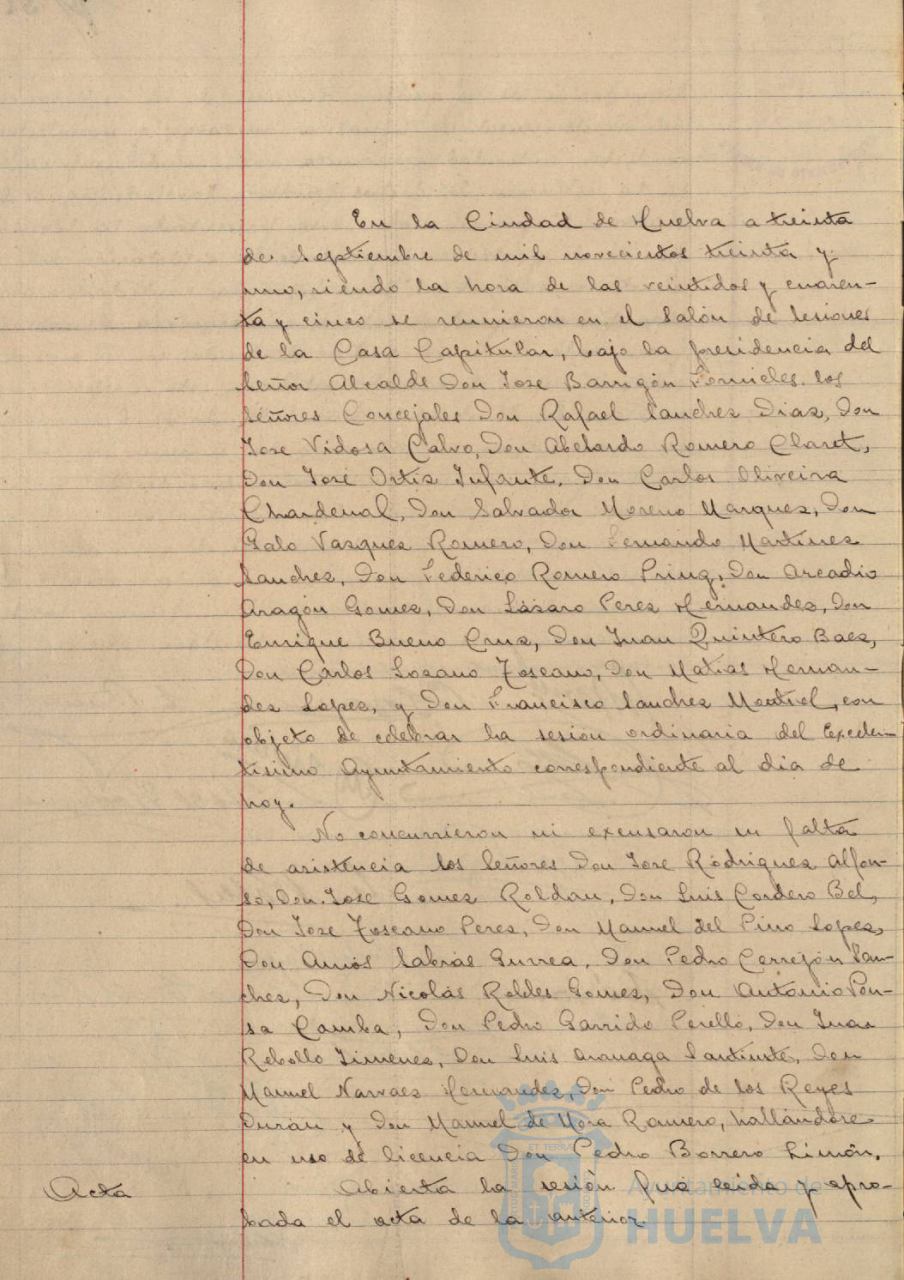 En la Ciudad de Huelva a treinta
de Septiembre de mil novecientos treinta y
uno, siendo la hora de las veintidos y cuaren-
ta y cinco se reunieron en el Salón de Sesiones
de la Casa Capitular, bajo la presidencia del
Señor Alcalde Don Jose Barrigón Fornieles. los
Señores Concejales Don Rafael Sanchez Diaz, Don
Jose Vidosa Calvo, Don Abelardo Romero Claret,
Don José Ortiz Infante, Don Carlos Oliveira
Chardenal, Don Salvador Moreno Marquez, Don
Galo Vazquez Romero, Don Fernando Martinez
Sanchez, Don Federico Romero Don Arcadio
Aragón Gomez, Don Lázaro Perez Hernandez, Don
Enrique Bueno Cruz, Don Juan Quintero Baez,
Don Carlos Lozano Toscano, Don Matias Hernan-
dez Lopez, y Don Francisco Sanchez Montiel, con
objeto de celebrar la sesión ordinaria del Excelen-
tisimo Ayuntamiento correspondiente al dia de
hoy.
No concurrieron ni excusaron su falta
de asistencia los Señores Don Jose Rodriguez Alfon-
so, Don Jose Gomez Roldan, Don Luis Cordero Bel,
Don Jose Toscano Perez, Don Manuel del Pino Lopez,
Don Amós Sabrás Gurrea, Don Pedro Cerrejón San-
chez, Don Nicolás Robles Gomez, Don Antonio Pon-
sa Camba, Don Pedro Garrido Perelló, Don Juan
Rebollo Jimenez, Don Luis Don
Manuel Narvaez Hernandez, Don Pedro de los Reyes
Durán y Don Manuel de Mora Romero, hallándose
en uso de licencia Don Pedro Borrero Limón.
Acta Abierta la sesión fué leida y apro-
bada el acta de la anterior
Ayuntamiento de
HUELVA